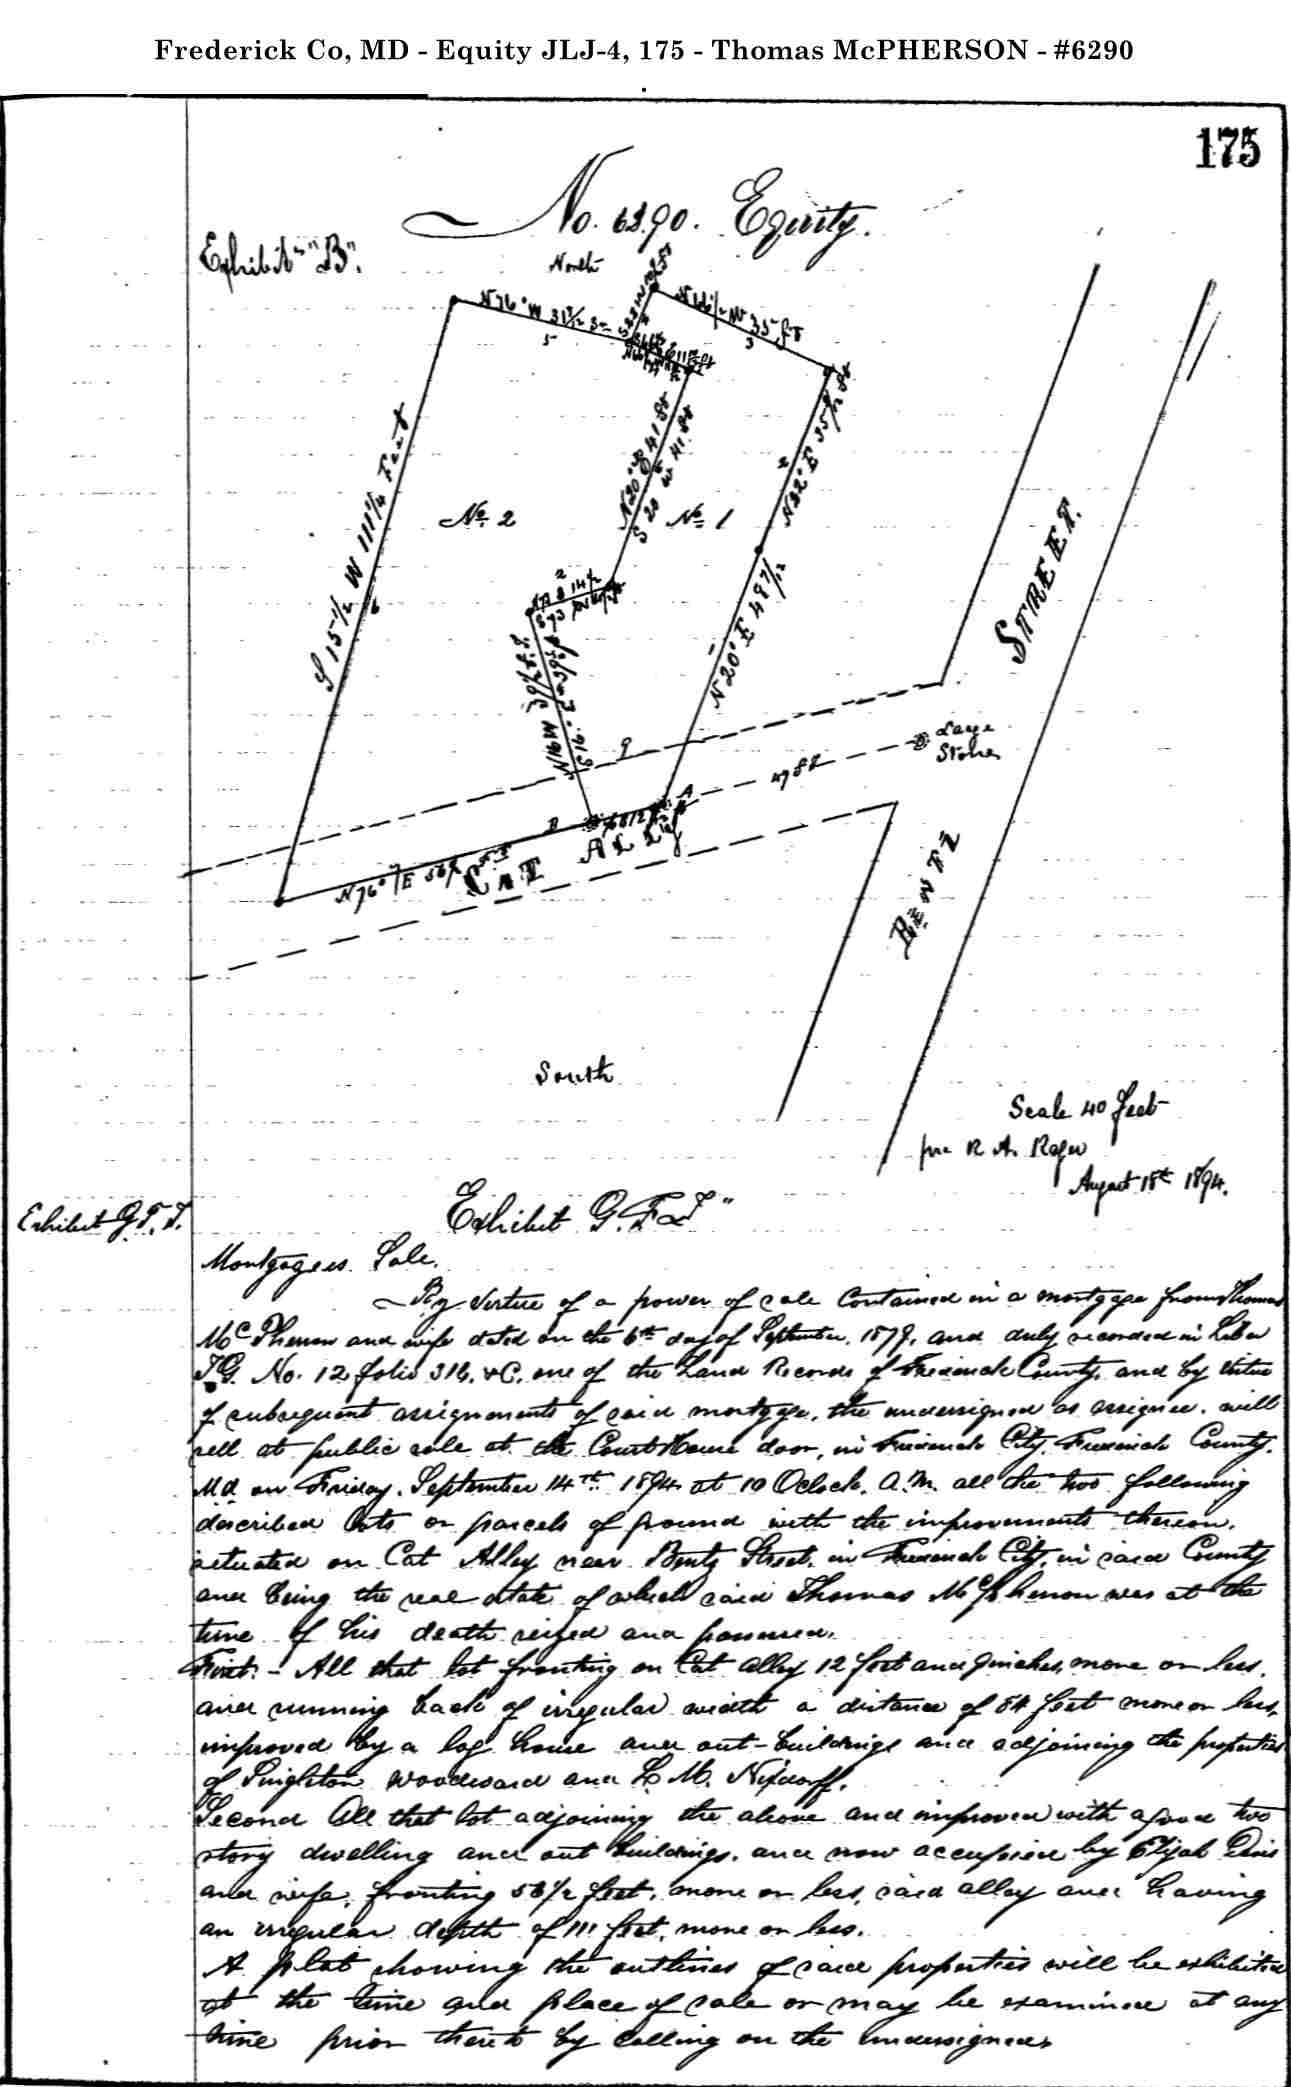 Frederick Co, MD - Equity JLJ-4, 175 - Thomas McPHERSON - #6290
175
No. 6290. Equity.
Exhibit "B".
North
N 76° W 31 1/2
5
N 66 1/2 W 35 ft
3
S 15 1/2 W 111 1/4 Feet
6
N 20° E 41 ft
S 20 W 41 ft
N 32° E 35
2
No. 2
No. 1
N 20° E 48 7/12
STREET.
Large
Stone
47 ft
A
B
N 76° E 56 1/2
CAT ALLEY
BENTZ
South
Scale 40 feet
per R. A. Rager
August 18th 1894.
Exhibit G. F. T.
Exhibit G. F. T"
Mortgagees Sale.
By virtue of a power of sale contained in a mortgage from Thomas
McPherson and wife dated on the 6th day of September, 1879, and duly recorded in Liber
T.G. No. 12 folio 316, &C, one of the Land Records of Frederick County, and by virtue
of subsequent assignments of said mortgage, the undersigned as assignee, will
sell at public sale at the Court House door, in Frederick City, Frederick County,
Md. on Friday, September 14th 1894 at 10 Oclock, A.M. all the two following
described lots or parcels of ground with the improvements thereon,
situated on Cat Alley near Bentz Street, in Frederick City, in said County
and being the real estate of which said Thomas McPherson was at the
time of his death seized and possessed.
First:- All that lot fronting on Cat alley 12 feet and 9 inches, more or less,
and running back of irregular width a distance of 84 feet more or less,
improved by a log house and out-buildings and adjoining the properties
of Singleton Woodward and L. M. Nixdorff.
Second All that lot adjoining the above and improved with a good two
story dwelling and out buildings, and now occupied by Elijah Davis
and wife, fronting 56 1/2 feet, more or less, said alley and having
an irregular depth of 111 feet, more or less.
A plat showing the outlines of said properties will be exhibited
at the time and place of sale or may be examined at any
time prior thereto by calling on the undersigned